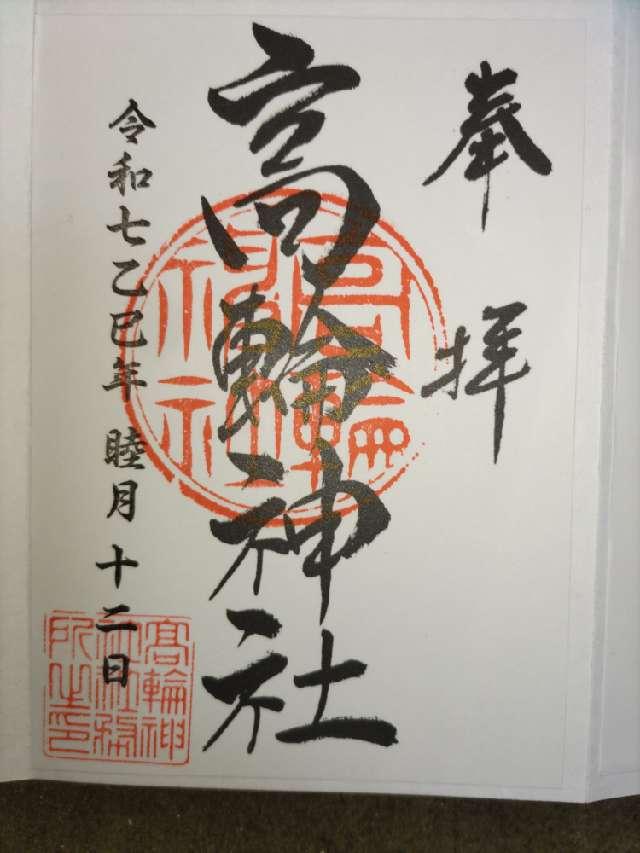 奉拝
高輪神社
令和七乙巳年 睦月 十二日
高輪神社
高輪神社社務所之印